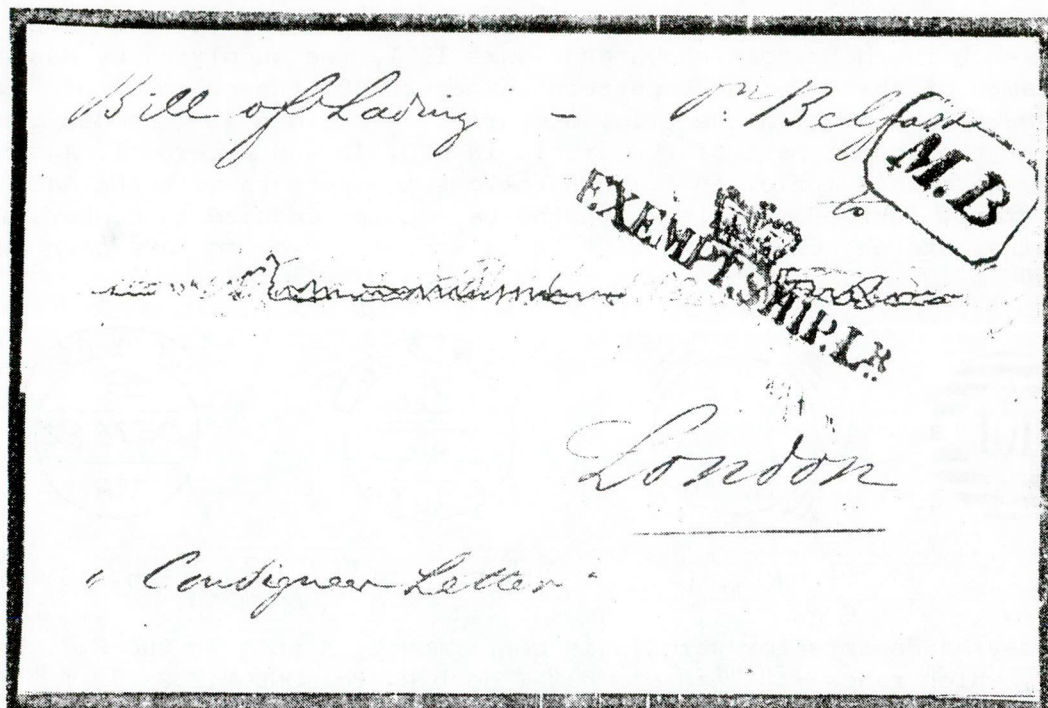 Bill of Lading - pr. Belfast
M.B
EXEMPT.SHIP.LR.
London
"Consignees Letter"